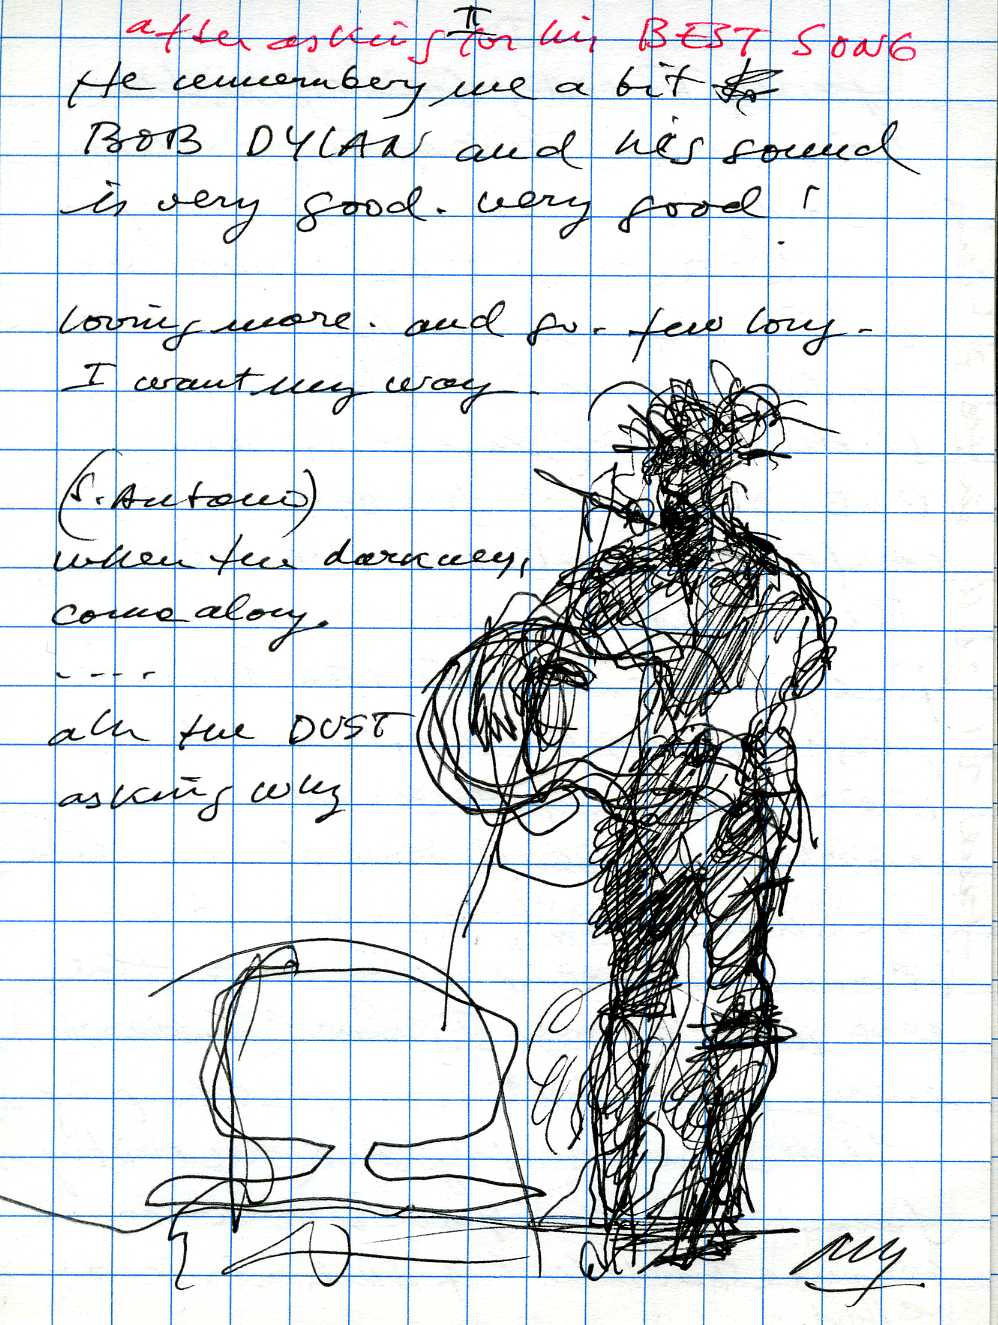 II
after asking for his BEST SONG
He remembers me a bit
BOB DYLAN and his sound
is very good. very good!
loving more. and go. few long.
I want my way.
(S. Antonio)
when the darkness,
come along.
....
all the DUST
asking why